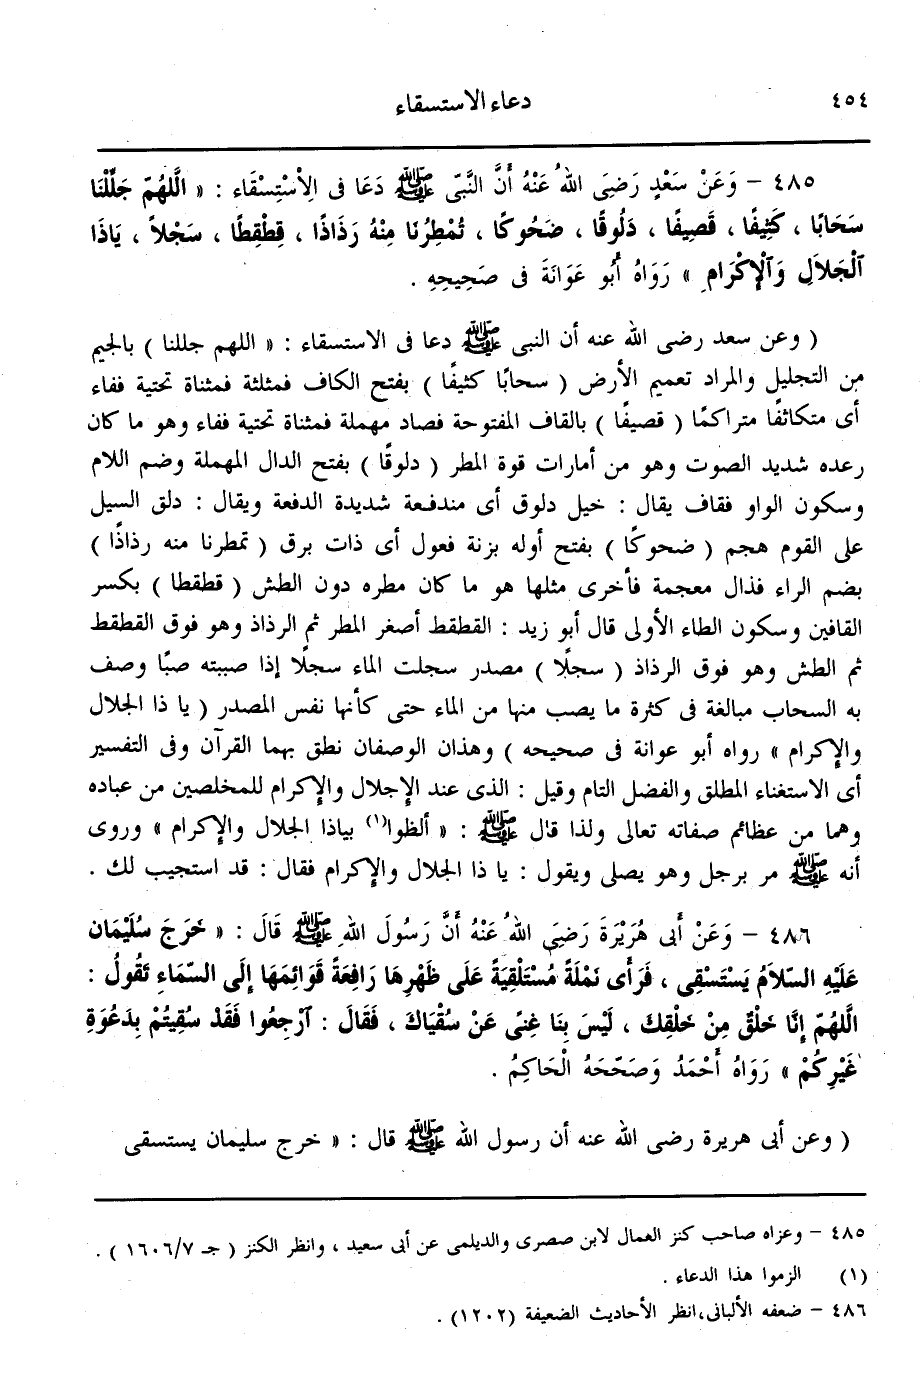 ٤٥٤ دعاء الاستسقاء
٤٨٥ – وَعَنْ سَعْدٍ رَضِىَ اللهُ عَنْهُ أَنَّ النَّبِىَّ ﷺ دَعَا فى الِاسْتِسْقَاء : « الَّلهُمّ جَلِّلْنَا
سَحَابًا ، كَثِيفًا ، قَصِيفًا ، دَلُوقًا ، ضَحُوكًا ، تُمْطِرُنَا مِنْهُ رَذَاذًا ، قِطْقِطًا ، سَجْلاً ، يَاذَا
الْجَلاَلِ وَالْإِكْرَامِ » رَوَاهُ أَبُو عَوَانَةَ فى صَحِيحِهِ .
( وعن سعد رضى الله عنه أن النبى ﷺ دعا فى الاستسقاء : « اللهم جللنا ) بالجيم
من التجليل والمراد تعميم الأرض ( سحابًا كثيفًا ) بفتح الكاف فمثلثة فمثناة تحتية ففاء
أى متكاثفًا متراكمًا ( قصيفًا ) بالقاف المفتوحة فصاد مهملة فمثناة تحتية ففاء وهو ما كان
رعده شديد الصوت وهو من أمارات قوة المطر ( دلوقًا ) بفتح الدال المهملة وضم اللام
وسكون الواو فقاف يقال : خيل دلوق أى مندفعة شديدة الدفعة ويقال : دلق السيل
على القوم هجم ( ضحوكًا ) بفتح أوله بزنة فعول أى ذات برق ( تمطرنا منه رذاذًا )
بضم الراء فذال معجمة فأخرى مثلها هو ما كان مطره دون الطش ( قطقطا ) بكسر
القافين وسكون الطاء الأولى قال أبو زيد : القطقط أصغر المطر ثم الرذاذ وهو فوق القطقط
ثم الطش وهو فوق الرذاذ ( سجلًا ) مصدر سجلت الماء سجلًا إذا صببته صبًا وصف
به السحاب مبالغة فى كثرة ما يصب منها من الماء حتى كأنها نفس المصدر ( يا ذا الجلال
والإكرام » رواه أبو عوانة فى صحيحه ) وهذان الوصفان نطق بهما القرآن وفى التفسير
أى الاستغناء المطلق والفضل التام وقيل : الذى عند الإجلال والإكرام للمخلصين من عباده
وهما من عظائم صفاته تعالى ولذا قال ﷺ : « ألظوا(١) بياذا الجلال والإكرام » وروى
أنه ﷺ مر برجل وهو يصلى ويقول : يا ذا الجلال والإكرام فقال : قد استجيب لك .
٤٨٦ – وَعَنْ أَبى هُرَيْرَةَ رَضِىَ اللهُ عَنْهُ أَنَّ رَسُولَ اللهِ ﷺ قَالَ : « خَرَجَ سُلَيْمَان
عَلَيْهِ السّلاَمُ يَسْتَسْقِى ، فَرَأَى نَمْلَةً مُسْتَلْقِيَةً عَلَى ظَهْرِهَا رَافِعَةً قَوَائِمَهَا إِلَى السّمَاءِ تَقُولُ :
الَّلهُمّ إِنَّا خَلْقٌ مِنْ خَلْقِكَ ، لَيْسَ بِنَا غِنىً عَنْ سُقْيَاكَ ، فَقَالَ : ارْجِعُوا فَقَدْ سُقِيتُمْ بِدَعْوَةِ
غَيْرِكُمْ » رَوَاهُ أَحْمَدُ وَصَحّحَهُ الْحَاكِمُ .
( وعن أبى هريرة رضى الله عنه أن رسول الله ﷺ قال : « خرج سليمان يستسقى
٤٨٥ – وعزاه صاحب كنز العمال لابن صصرى والديلمى عن أبى سعيد ، وانظر الكنز ( جـ ١٦٠٦/٧ ) .
(١) الزموا هذا الدعاء .
٤٨٦ – ضعفه الألبانى،انظر الأحاديث الضعيفة (١٢٠٢) .